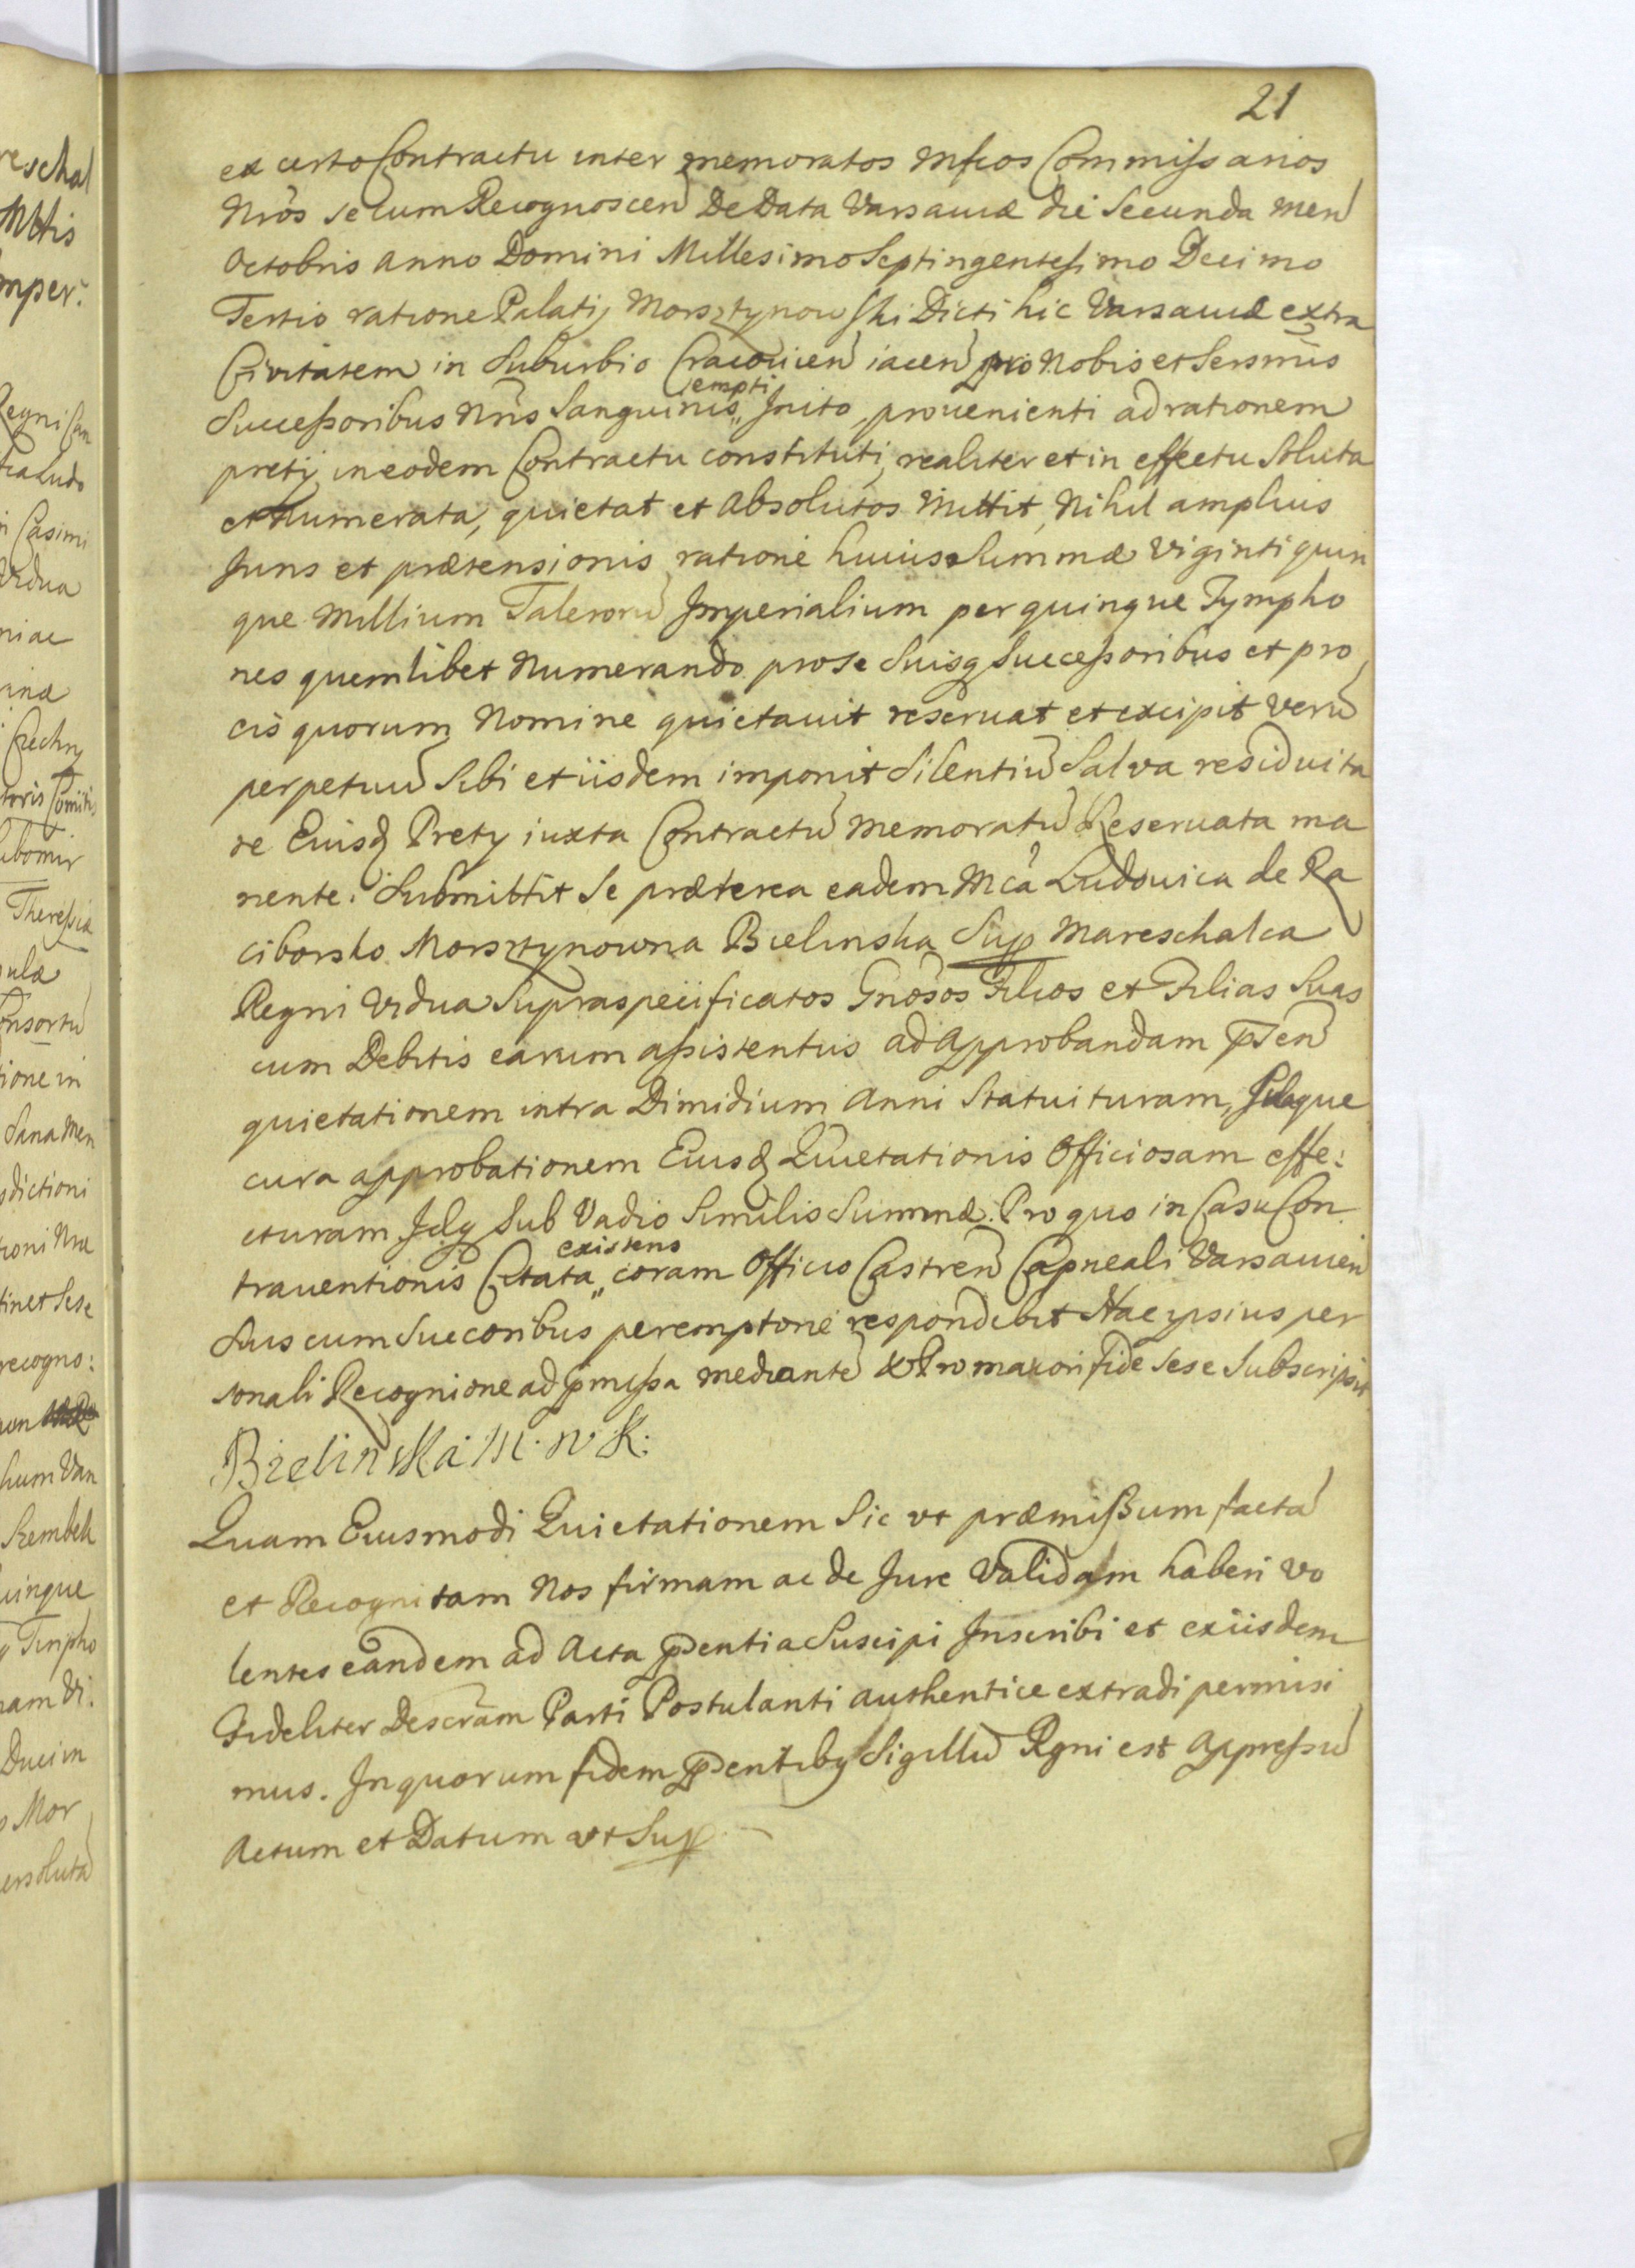 21
ex certo Contractu inter memoratos Mficos Commissarios
Nrôs secum Recognoscen De Data Varsaviæ die Secunda Men
Octobris Anno Domini Millesimo Septingentesimo Decimo
Tertio ratione Palatij Morsztynowski Dicti hic Varsaviæ extra
Civitatem in Suburbio Cracovien iacen pro Nobis et Sersmis
empti
Successoribus Nrîs Sanguinis,, Inito, provenienti ad rationem
pretij in eodem Contractu constituti, realiter et in effectu Soluta
et Numerata, quietat et Absolutos Mittit, Nihil amplius
Juris et prætensionis ratione huius Summæ Viginti quin
que Millium Talerorũ Imperialium per quinque Tympho
nes quemlibet Numerando pro se Suisq Successoribus et pro
eis quorum Nomine quietavit reservat et excipit verũ
perpetuũ Sibi et iisdem imponit Silentiũ Salva residuita
te Eiusd Prety iuxta Contractũ Memoratũ Reservata ma
nente. Submittit Se præterea eadem Mca Ludovica de Ra
ciborsko Morsztynowna Bielinska Sup Mareschalca
Regni Vidua Supraspecificatos Gnosos Filios et Filias Suas
cum Debitis earum assistentiis ad Approbandam pñtem
quietationem intra Dimidium Anni Statuituram,
cura approbationem Eiusd Quietationis Officiosam effe:
cturam Idq Sub Vadio Similis Summæ. Pro quo in Casu Con
existens
traventionis Citata,, coram Officio Castren Capneali Varsavien
Suis cum Succoribus peremptorie respondebit Hac ipsius per
sonali Recognione ad pmissa mediante & Pro maiori fide Sese Subscripsit
Bielinska M. W. K:
Quam Eiusmodi Quietationem Sic ut præmissum facta
et Recognitam Nos firmam ac de Jure Validam haberi vo
lentes eandem ad Acta pñentia Suscipi Inscribi et exiisdem
Fideliter Descrãm Parti Postulanti authentice extradi permisi
mus. In quorum fidem pñentiby Sigillũ Rgni est Appressũ
Actum et Datum ut Sup